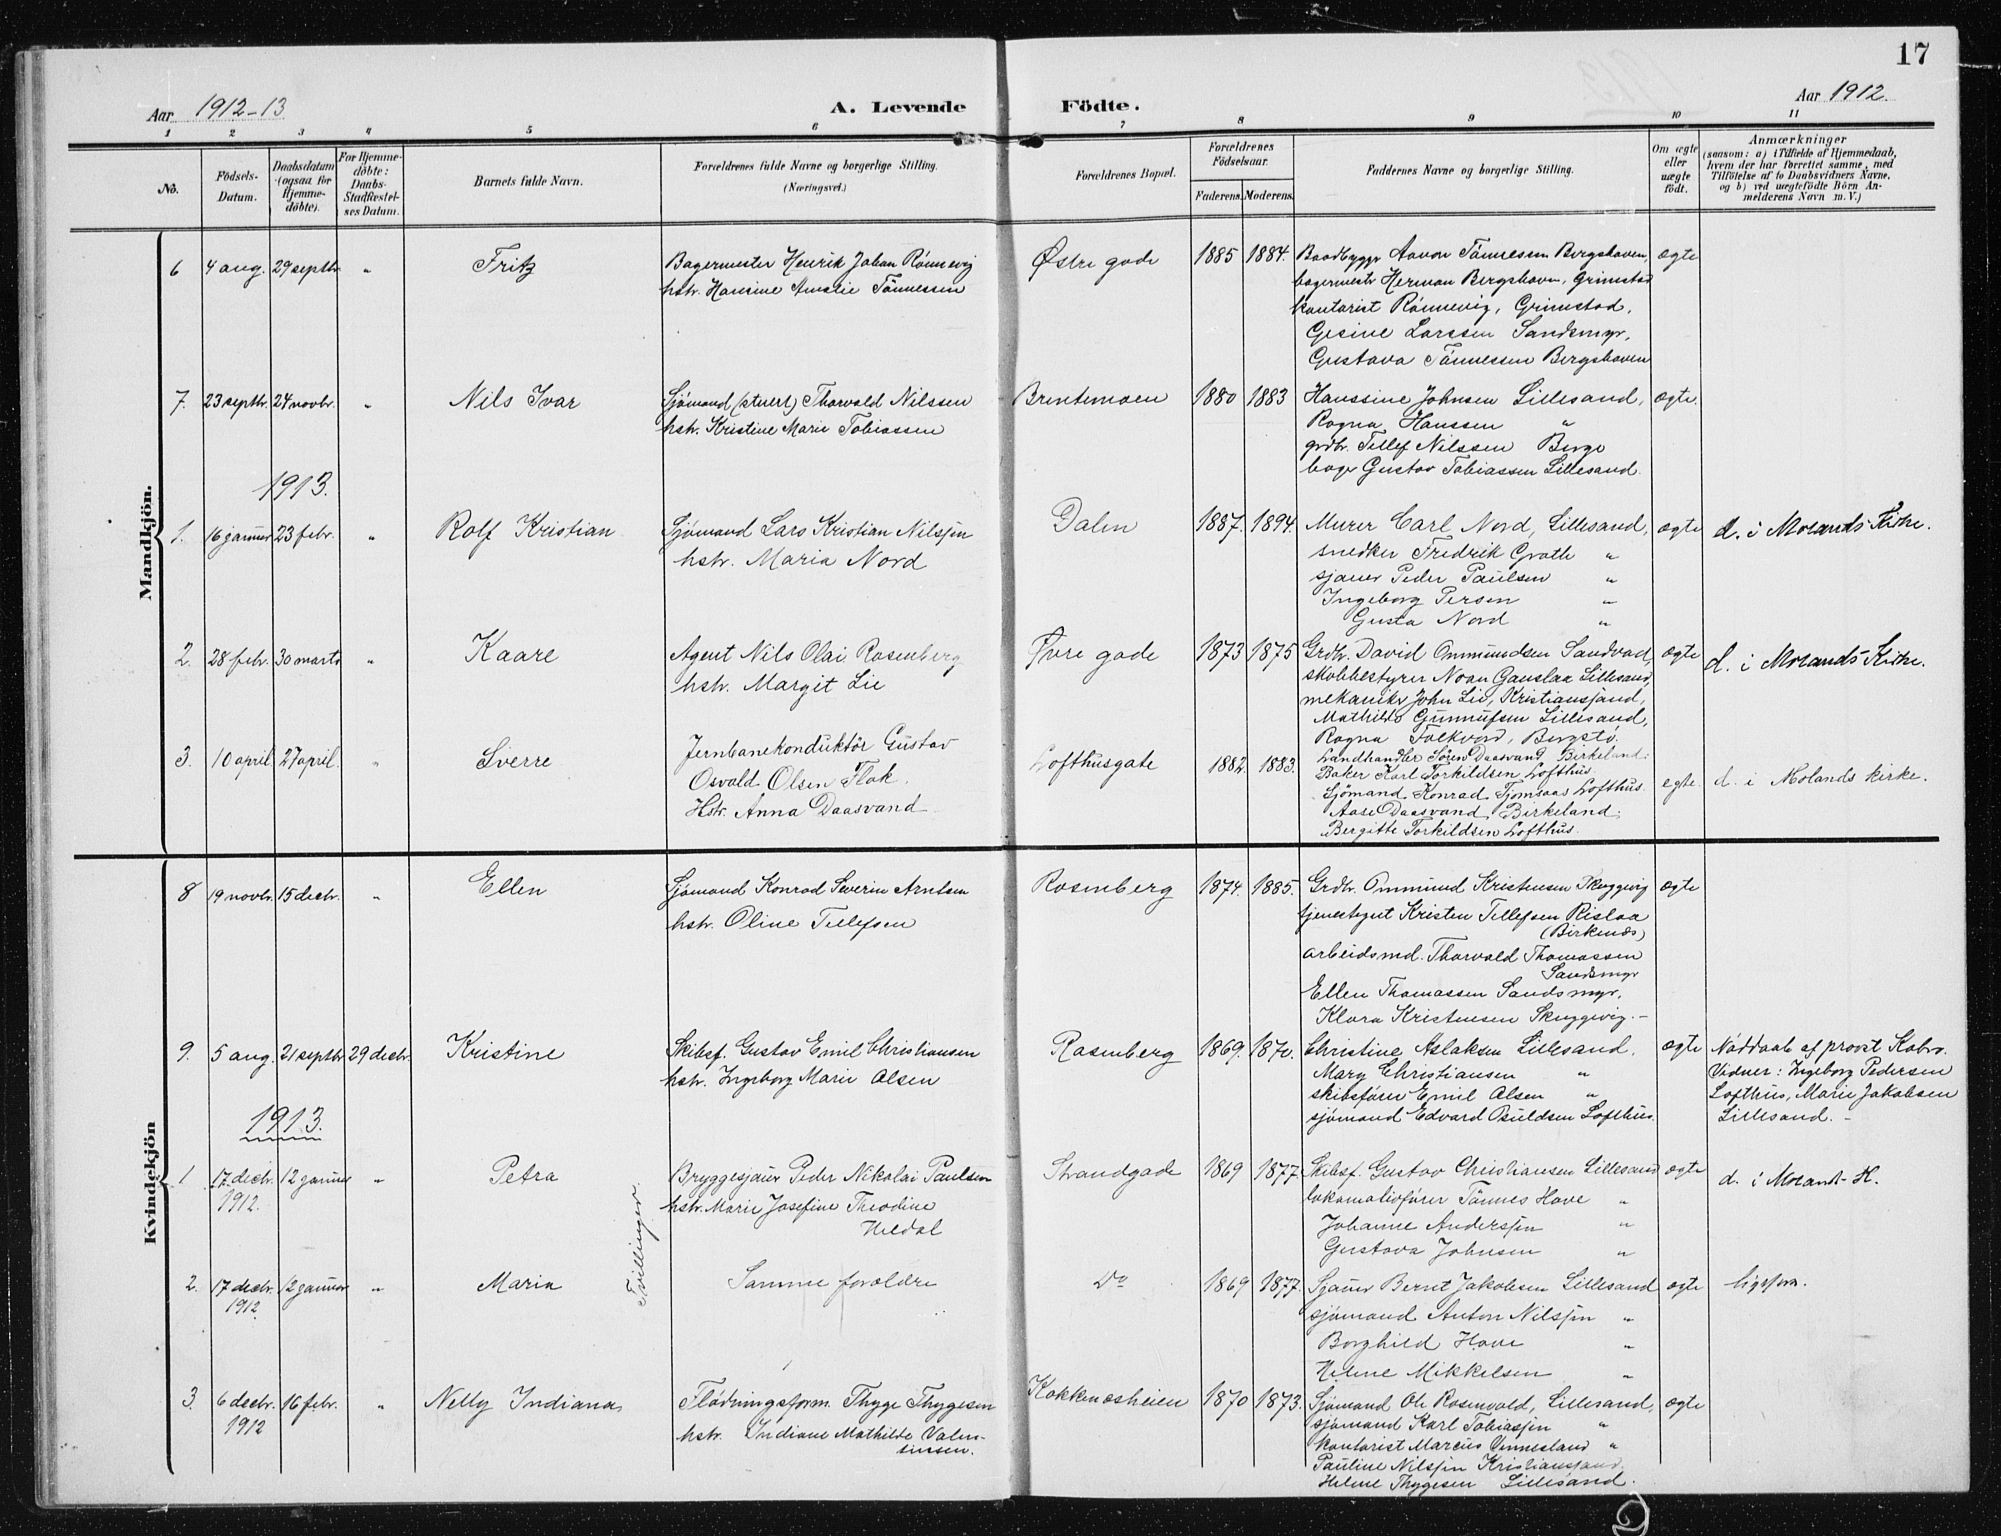 17
Aar 1912-13
A. Levende Födte.
Aar 1912.
1 2 3 4 5 6 7 8 9 10 11
No.
Födsels-Datum.
Daabsdatum (ogsaa for Hjemme-döbte).
For Hjemme-döbte: Daabs-Stadfæstel-ses Datum.
Barnets fulde Navn.
Forældrenes fulde Navne og borgerlige Stilling.
(Næringsvei.)
Forældrenes Bopæl.
Forældrenes Födselsaar.
Faderens. Moderens.
Faddernes Navne og borgerlige Stilling.
Om ægte eller uægte födt.
Anmærkninger
(saasom: a) i Tilfælde af Hjemmedaab,
hvem der har forrettet samme, med
Tilföielse af to Daabsvidners Navne,
og b) ved uægtefödte Börn An-
melderens Navn m. V.)
Mandkjön.
6 4 aug. 29 septbr. " Fritz
Bagermester Henrik Johan Rönnevig
hstr. Hansine Amalie Tönnessen
Østre gade 1885 1884.
Baadbygger Aavon Tönnessen Bergshaven,
bagermestr Herman Bergshavn, Grimstad
kontorist Rönnevig, Grimstad,
Gesine Larssen Sandsmyr,
Gustava Tönnessen Bergshaven
ægte
7. 23 septbr. 24 novbr. " Nils Ivar
Sjömand (stuert) Thorvald Nilssen
hstr. Kristine Marie Tobiassen
Brentemoen 1880 1883
Hanssine Johnsen Lillesand,
Ragna Hanssen "
grdbr. Tellef Nilssen Berge
bager Gustav Tobiassen Lillesand.
ægte.
1913.
1. 16 januar 23 febr. " Rolf Kristian
Sjömand Lars Kristian Nilssen
hstr. Maria Nord
Dalen 1887. 1894.
Murer Carl Nord, Lillesand,
snedker Fredrik Groth "
sjauer Peder Paulsen "
Ingeborg Persen "
Gusta Nord "
ægte d. i Molands Kirke.
2. 28 febr. 30 marts " Kaare
Agent Nils Olai Rosenberg
hstr. Margit Lie
Øvre gade 1873 1875
Grdbr. David Ommundsen Sandvad,
skolebestyrer Noan Gauslaa Lillesand,
mekaniker John Lie, Kristianssand,
Mathilde Gunnufsen Lillesand,
Ragna Folkvord, Bergstö.
ægte d. i Molands Kirke.
3. 10 april 27 april. " Sverre
Jernbanekonduktör Gustav
Osvald Olsen Flak.
Hstr. Anna Daasvand
Lofthusgate 1882. 1883.
Landhandler Sören Daasvand, Birkeland.
Baker Karl Torkildsen Lofthus.
Sjömand Konrad Tjomsaas Lofthus.
Aase Daasvand, Birkeland.
Bergitte Torkildsen Lofthus.
egte. d. i Molands kirke.
Kvindekjön
8 19 novbr. 15 decbr. " Ellen
Sjömand Konrad Severin Arntsen
hstr. Oline Tellefsen
Rosenberg 1874. 1885.
Grdbr. Ommund Kristensen Skuggevig
tjenestegut Kristen Tellefsen Rislaa
(Birkenæs)
arbeidsmd. Thorvald Thomassen
Sandsmyr
Ellen Thomassen Sandsmyr.
Klara Kristensen Skuggevig.-
ægte
9. 5 aug. 21 septbr. 29 decbr. Kristine
Skibsf. Gustav Emil Christiansen
hstr. Ingeborg Marie Olsen
Rosenberg 1869. 1870.
Christine Aslaksen Lillesand.
Mary Christiansen "
skibsförer Emil Olsen "
sjömand Edvard Osuldsen Lofthus.
ægte
Nöddaab af provst Kobro.
Vidner: Ingeborg Pedersen
Lofthus, Marie Jakobsen
Lillesand. -
1913.
1 17. decbr. 12 januar "
1912.
Petra
Tvillinger.
Bryggesjauer Peder Nikolai Paulsen
hstr. Marie Josefine Theodine
Heldal
Strandgade 1869 1877.
Skibsf. Gustav Christiansen Lillesand
lokomotivförer Tönnes Hove "
Johanne Anderssen "
Gustava Johnsen "
ægte d. i Moland K.
2. 17 decbr. 12 januar "
1912.
Maria
Samme forældre
Do 1869 1877.
Sjauer Bernt Jakobsen Lillesand
sjömand Anton Nilssen "
Borghild Hove "
Helene Mikkelsen "
ægte ligesom.
3. 6 decbr. 16 febr. "
1912
Nelly Indiana
Flödningsform. Thyge Thygesen
hstr. Indiane Mathilde Valen-
tinsen.
Kokkenesheien 1870 1873.
Sjömand Ole Rosenvold, Lillesand,
sjömand Karl Tobiassen "
kontorist Marcus Vennesland "
Pauline Nilssen Kristianssand
Helene Thygesen Lillesand.
ægte